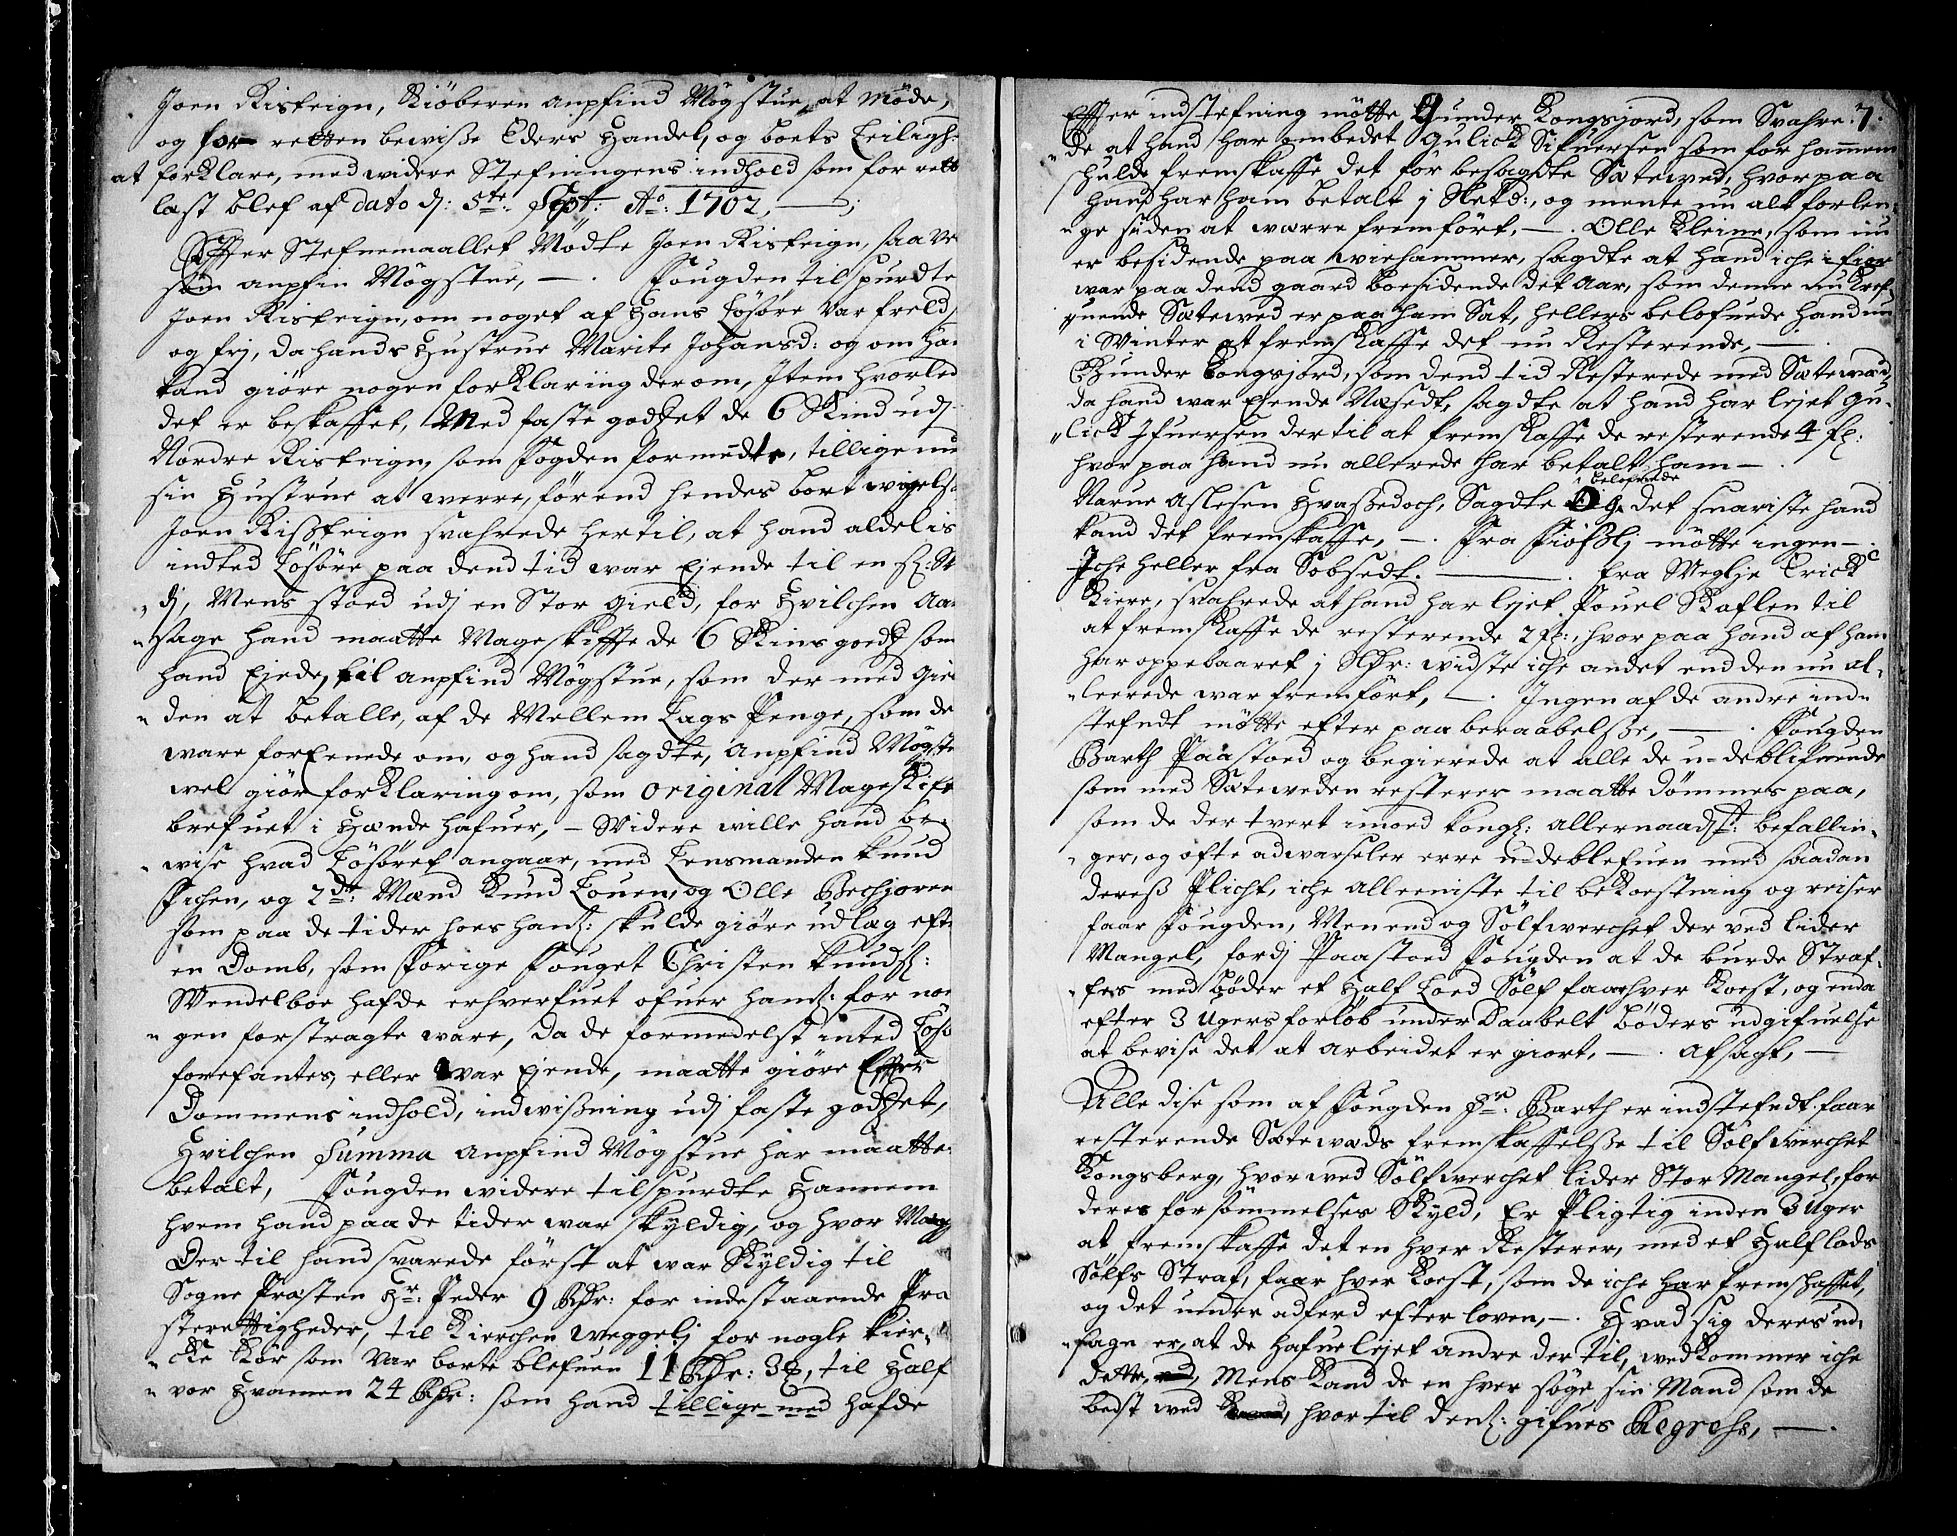 Joen Risteign, Kiöberen anpfind Mögstue, at Møde,
og for retten bewisse Eders Handel, og boets Leiligh:
at forklare, med widere Stefningens indhold som for rett
læst blef af dato d: 5te: Sept: Ao: 1702, —;
Effter Stefnemaallet Mødte Joen Risteign, saa ve
som anpfin Mögstue, — . Fougden tilspurdte
Joen Risteign, om noget af Hans Løsøre var freld,
og frj, da hands Hustrue Marite Johansd: og om ha
kand giöre nogen forklaring derom, Jtem hvorled
det er beskaffet, Med faste godzet de 6 Skind udj
Nordre Risteign, som Fogden formedte, tillige nu
sin Hustrue at werre, førend hendes bortwigelse
Joen Rissteign svahrede hertil, at hand aldelis
indted Løsøre paa dend tid war Ejende til en sl: St
dj, Mens stoed udj en Stor gield, for Hvilchen Aar
sage hand maatte Mageskiffte de 6 Skins godz som
hand Ejede, til anpfind Mögstue, som der med giel
den at betalle, af de Mellem Lags Penge, som de
ware forEenede om, og hand sagdte, anpfind Mögstu
wel giör forklaring om, som original Mageskift
brefuet i Hænde hafuer, — Widere wille hand be
wise hvad Løsøret angaar, med Lensmanden knud
Fichen, og 2de: Mænd knud Louen, og Olle Bechjoren
som paa de tider hoes hanl: skulde giöre udlæg eft
en Domb, som forige Fouget Christen knuds:
Wendelboe hafde erhverfuet ofuer haml: for no
gen forstragte ware, da de formedelst inted Løsø
forefantes, eller war Ejende, maatte giöre Effter
Dommens indhold, indwissning udj faste godzet,
Hvilchen Summa anpfind Mögstue har maatte
betalt, Fougden widere tilspurdte Hannem
hvem hand paa de tider war skyldig, og hvor Mege
Der til hand svarede først at war Skyldig til
Sogne Præsten Hr: Peder 9 Rdr: for indestaaende Præ
sterettigheder, til kierchen Weggelj for nogle kier-
cke kör som var borte blefuen 11 Rdr: 3 , til Half
vor Hvamen 24 Rdr: som hand tillige med hafde
Effter indstefning mötte Gunder kongsjord, som Svahre: 7.
de at hand har ombedet Gulick Sifuersen som for hannem
schulde fremskaffe det for besagdte Sætewed, hvorpaa
hand har ham betalt j Rixd:, og mente nu alt forlen
ge siden at warre fremført, — . Olle kleine, som nu
er besidende paa wiehammer, sagdte at hand iche i fior
war paa dend gaard boesidende det Aar, som denne nu kref-
uende Sætewed er paa ham Sat, hellers belofuede hand nu
i Winter at fremskaffe det nu Resterende, — .
Gunder kongsjord, som dend tid Resterede med Sætewæd,
da hand war Ejende Næsedt, sagdte at hand har lejet Gu-
lick Jfuersen dertil at fremskaffe de resterende 4 fl:
hvor paa hand nu allerede har betalt ham — .
belofuede
Narue Aslesen Hvassedoch, Sagdte Og det snariste hand
kand det fremskaffe, — . Fra Fiöslj mötte ingen — .
Iche heller fra Sobsedt. — . Fra Meglje Erick
kiere, svahrede at hand har lejet Pouel Skaflen til
at fremskaffe de resterende 2 fl:, hvor paa hand af ham
har oppebaaret j Rdr: widste iche andet end den nu al-
leerede war fremfört, — . Ingen af de andre ind-
stefndt mötte efter paaberaabelsse, — . Fougden
Barth Paastoed og begierede at alle de u-deblifuende
som med Sæteweden resterer maatte dömmes paa,
som de der twert imoed kongl: allernaadst: befallin-
ger, og ofte adwarseler erre u-deblefuen med saadan
deress Plicht, iche alleeniste til bekoestning og reiser
faar Fougden, Men end og Sölfwerchet der ved lider
Mangel, fordj Paastoed Fougden at de burde Straf-
fes med böder et Half Loed Sölf faar hver koest, og enda
efter 3 Ugers forlöb under Daabelt böders udgifuelse
at bevise det at arbeidet er giort, — . afsagt, —
Alle dise som af Fougden Sr: Barth er indstefndt faar
resterende Sætewæds fremskaffelsse til Sölfwerchet
kongsberg, hvorwed Sölfwerchet lider Stor Mangel, for
deres forsömmelses Skyld, Er Pligtig inden 3 Uger
at fremskaffe det en hver Resterer, med et Half lods
Sölfs Straf, faar hver koest, som de iche har fremschaffet,
og det under adferd efter loven, — . Hvad sig deres ud-
sagn er, at de hafue lejet andre der til, wedkommer iche
dette, Mens kand de en hver söge sin Mand som de
bedst wed , hvor til denl: gifues Regrehs, — .